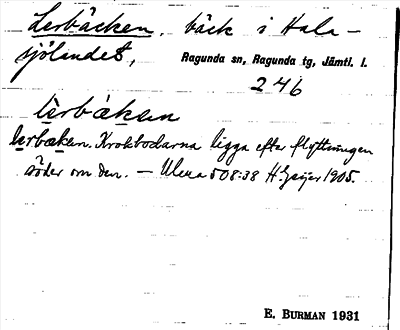 Lerbäcken, bäck i Hala-
sjölandet, Ragunda sn, Ragunda tg, Jämtl. l.
246
lèrbǻkan
lerbæken. Krokbodarna ligga efter flyttningen
söder om den. — Ulma 508:38 H. Geijer 1905.
E. BURMAN 1931